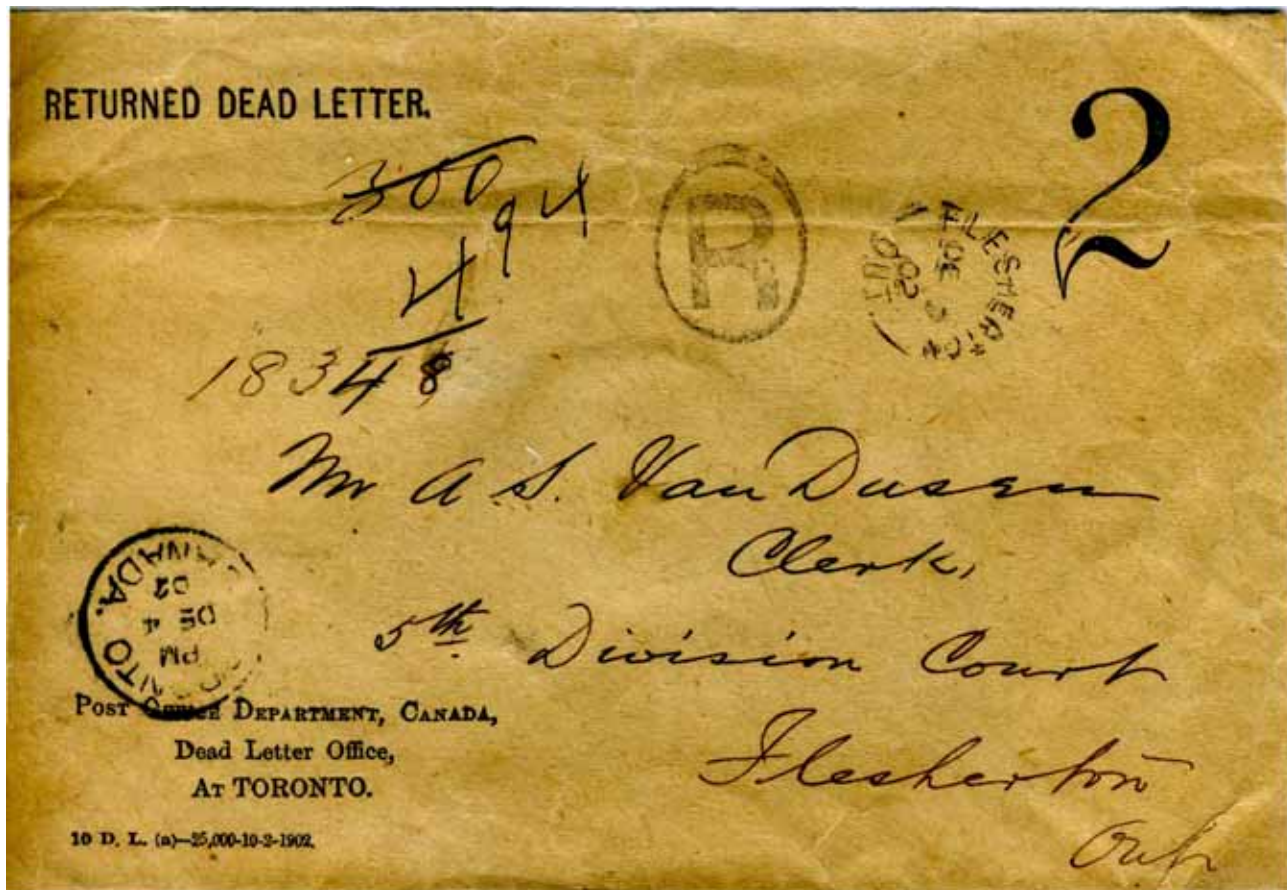 RETURNED DEAD LETTER.
2
300
494
R
FLESHERTON
DE 5
02
ONT
18348
Mr A. S. Van Dusen
Clerk,
5th Division Court
Flesherton
Ont
TORONTO CANADA.
PM
DE 4
02
POST OFFICE DEPARTMENT, CANADA,
Dead Letter Office,
AT TORONTO.
10 D. L. (a)—25,000-10-2-1902.